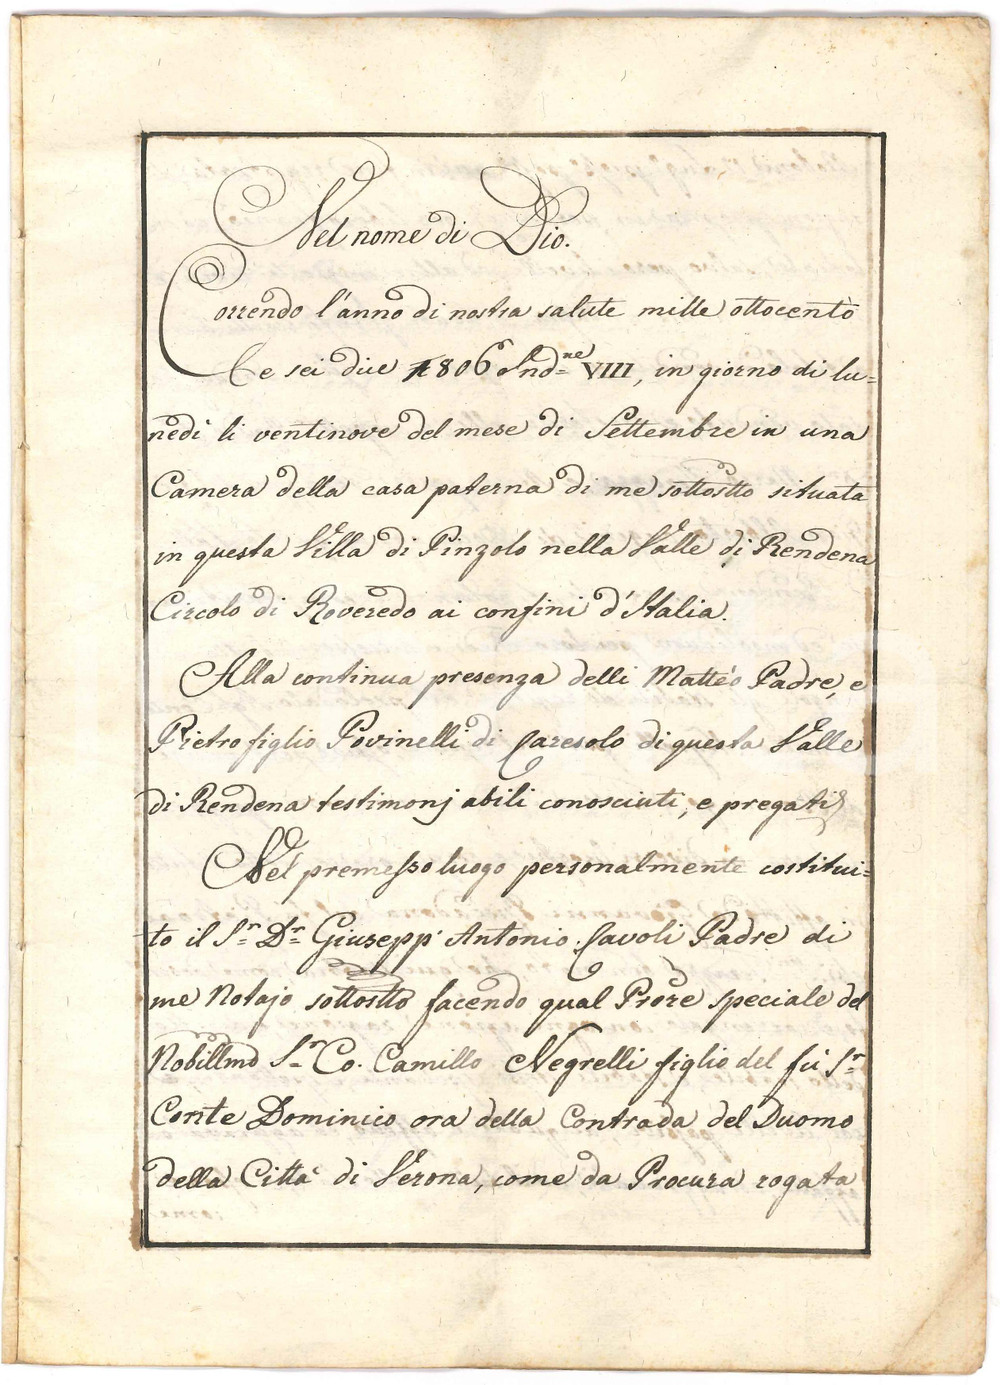 Nel nome di Dio.
Correndo l'anno di nostra salute mille ottocento
e sei dico 1806 Indne VIII, in giorno di lu=
nedì li ventinove del mese di Settembre in una
Camera della casa paterna di me sottostto situata
in questa Villa di Pinzolo nella Valle di Rendena
Circolo di Roveredo ai confini d'Italia.
Alla continua presenza delli Mattèo Padre, e
Pietro figlio Povinelli di Caresolo di questa Valle
di Rendena testimonj abili conosciuti, e pregati
Nel premesso luogo personalmente costitui=
to il Sr Dr Giusepp' Antonio Cavoli Padre di
me Notajo sottostto facendo qual Prore speciale del
Nobillmo Sr Co. Camillo Negrelli figlio del fú Sr
Conte Dominico ora della Contrada del Duomo
della Città di Verona, come da Procura rogata